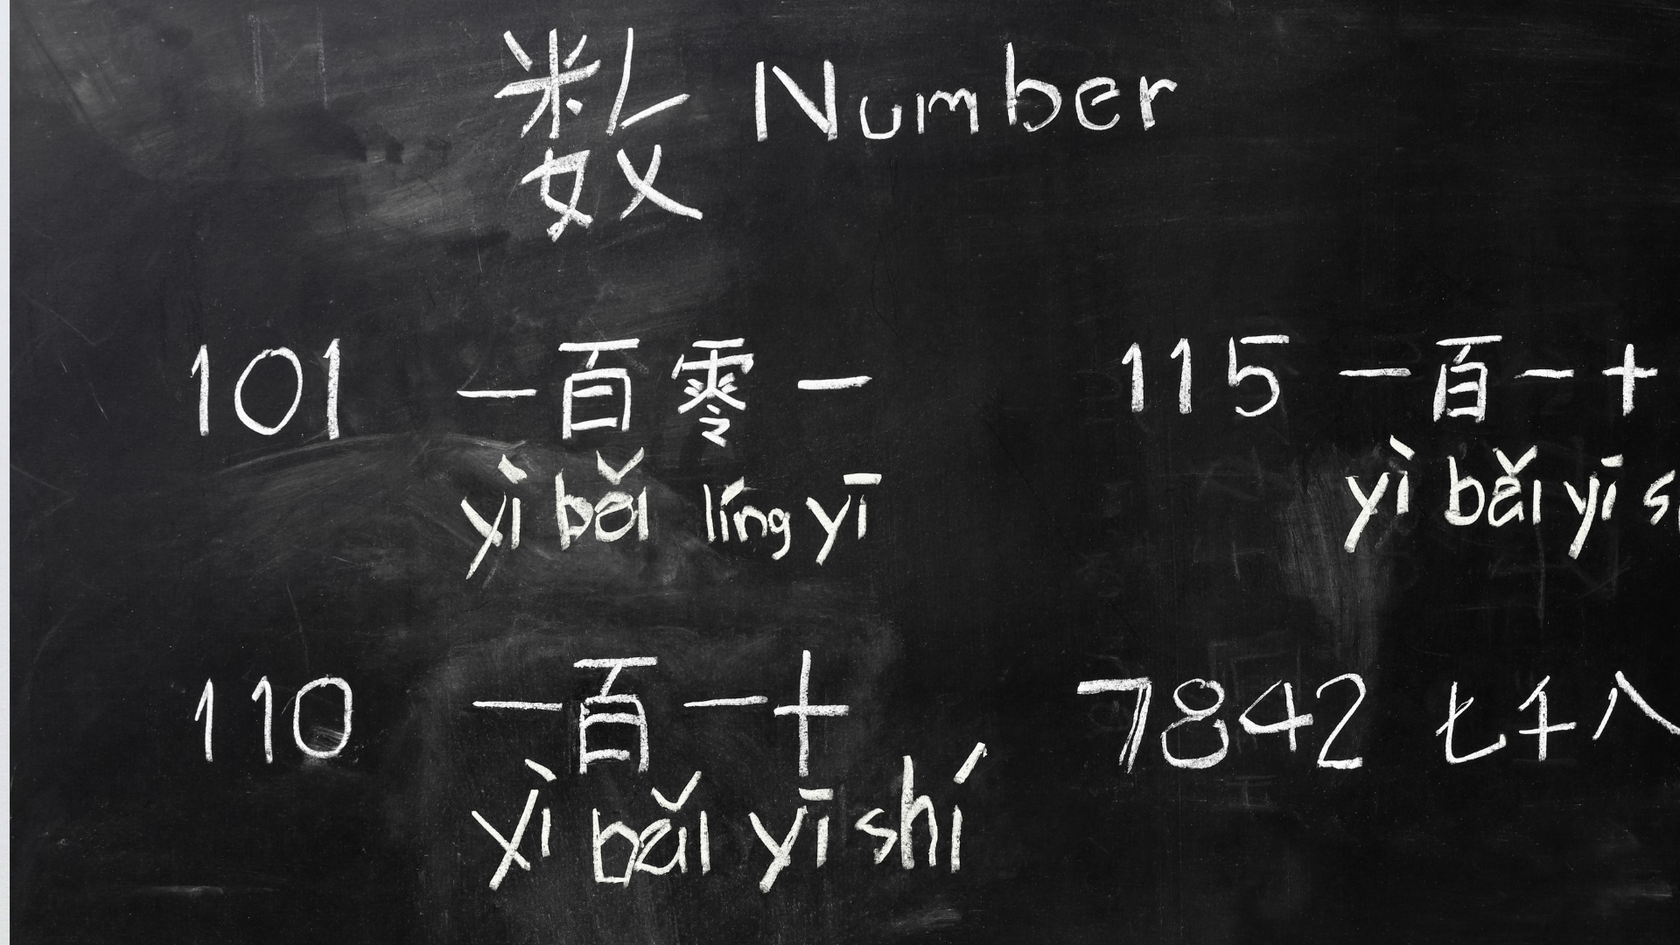 数 Number
101 一百零一
yì bǎi líng yī
110 一百一十
yì bǎi yī shí
115 一百一十
yì bǎi yī s
7842 七千八